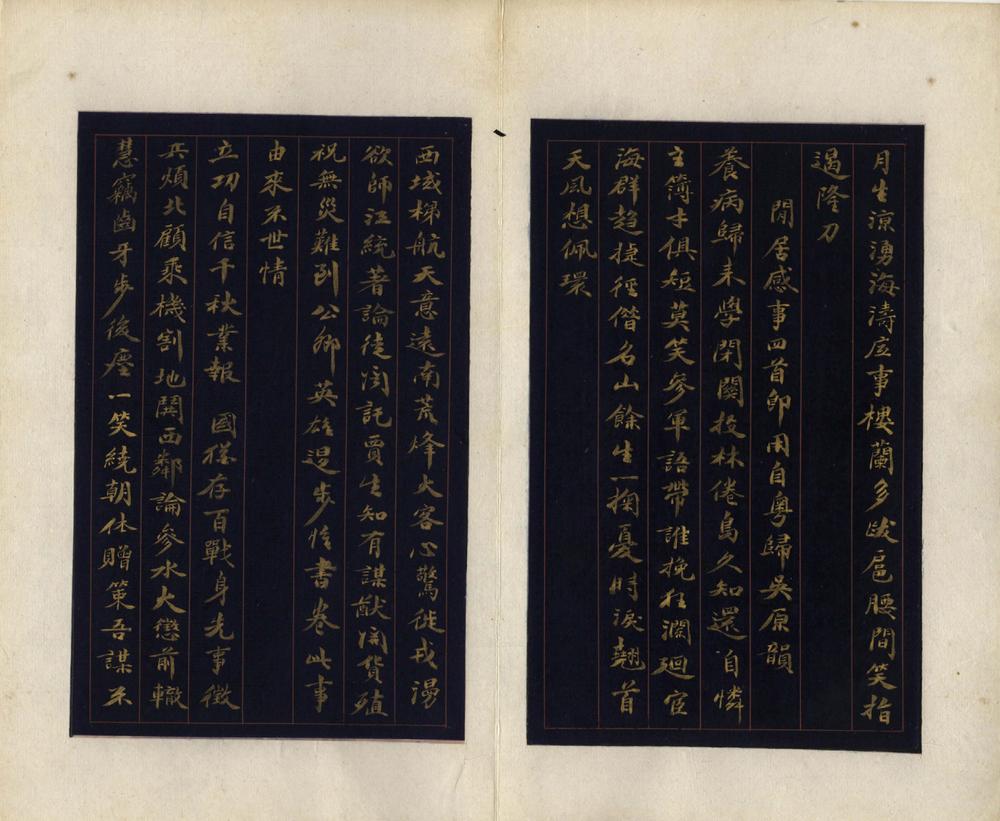 月生涼湧海濤应事樓蘭多跋扈腰間笑指
過隆刀
閒居感事四首即用自粵歸吳原韻
養病歸来學閉關投林倦鳥久知還自憐
主簿才俱短莫笑參軍語帶誰挽狂瀾廻宦
海群趨捷徑僭名山餘生一掬憂時淚翹首
天風想佩環
西域梯航天意遠南荒烽火客心驚徙戎漫
欲師江統著論徒聞託賈生知有謀猷開貨殖
祝無災難到公卿英雄退步惟書卷此事
由來不世情
立功自信千秋業報 國猶存百戰身先事徵
兵煩北顧乘機割地鬩西鄰論參水火懲前轍
慧竊齒牙步後塵一笑繞朝休贈策吾謀不